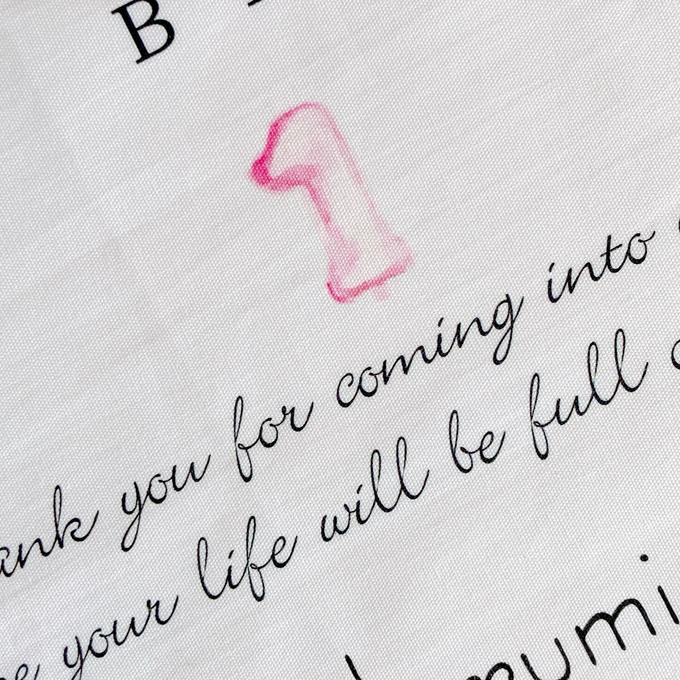 B
1
ank you for coming into
e your life will be full
umi